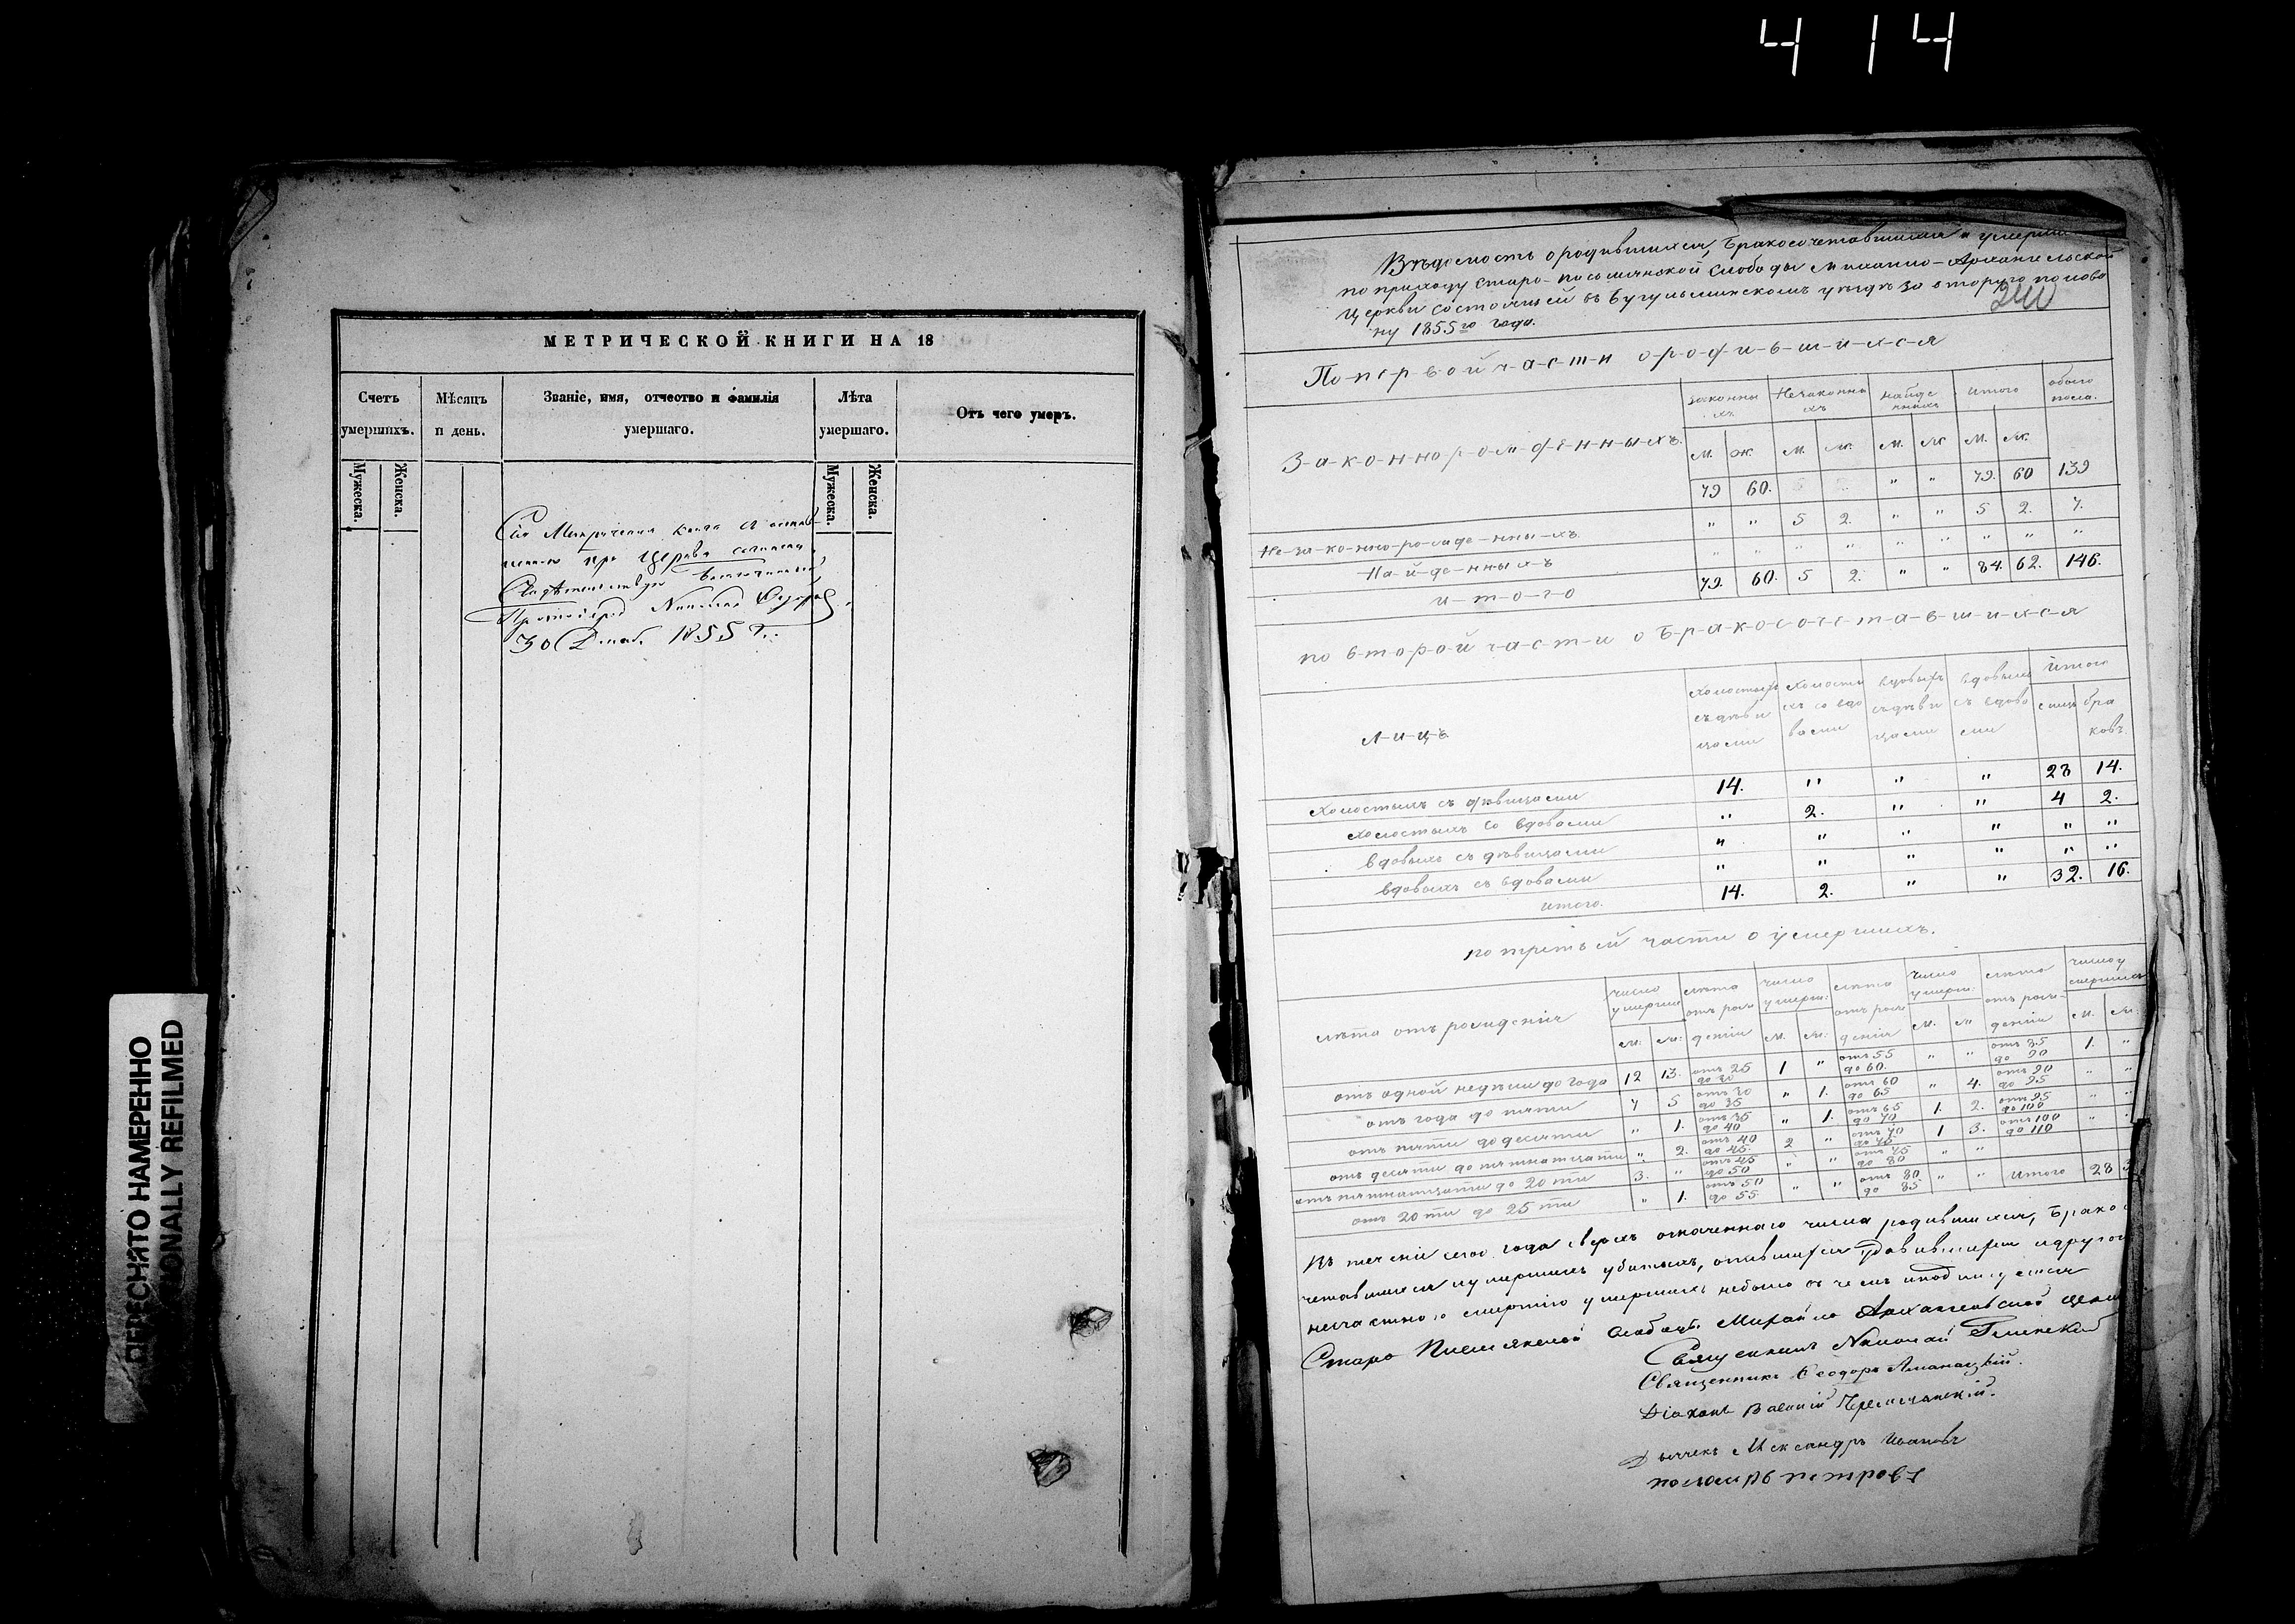 4 14
МЕТРИЧЕСКОЙ КНИГИ НА 18
Счетъ умершихъ.
Мѣсяцъ и день.
Званіе, имя, отчество и фамилія умершаго.
Лѣта умершаго.
Отъ чего умеръ.
Мужеска. Женска. Мужеска. Женска.
Сія Метрическая книга
при Церкви
30 Декаб. 1855 г.
ПЕРЕСНЯТО НАМЕРЕННО
IONALLY REFILMED
Вѣдомость о родившихся, бракосочетавшихся и умерши
по приходу Старо-письмянской Слободы Михаило-Архангельской
церкви состоящей въ Бугульминскомъ уѣздѣ за вторую полови
ну 1855го года.
240
По первой части о родившихся
законныхъ Незаконныхъ найденныхъ итого обоего пола.
м. ж. м. ж. м. ж. м. ж.
Законнорожденныхъ. 79 60. " " 79. 60 139
Незаконнорожденныхъ " " 5 2. " " 5 2. 7.
Найденныхъ " " " " " " " " "
итого 79. 60. 5 2. " " 84. 62. 146.
по второй части о бракосочетавшихся
лицъ
холостыхъ съ дѣвицами
холостыхъ со вдовами
вдовыхъ съ дѣвицами
вдовыхъ съ вдовами
Итого
браковъ.
холостыхъ съ дѣвицами 14. " " " 28 14.
холостыхъ со вдовами " 2. " " 4 2.
вдовыхъ съ дѣвицами " " " " " "
вдовыхъ съ вдовами " " " " " "
итого. 14. 2. " " 32. 16.
по третьей части о умершихъ.
лѣта отъ рожденія
число умерши
лѣта отъ рожденія
число умерш:
лѣта отъ рожденія
число умерш:
лѣта отъ рожденія
число умершихъ
м: ж: м. ж: м. ж м. ж:
отъ одной недѣли до года 12 13. отъ 25 до 30 1 " отъ 55 до 60. " " отъ 85 до 90 1. "
отъ года до пяти 7 5 отъ 30 до 35 " 1. отъ 60 до 65 " 4. отъ 90 до 95 " "
отъ пяти до десяти " 1. отъ 35 до 40 " 1. отъ 65 до 70 1. 2. отъ 95 до 100 " "
отъ десяти до пятнатцати " 2. отъ 40 до 45. 2 " отъ 70 до 75. 1 3. отъ 100 до 110 " "
отъ пятнатцати до 20 ти 3. " отъ 45 до 50 " " отъ 75 до 80 " "
отъ 20 ти до 25 ти " 1. отъ 50 до 55. " " отъ 80 до 85 " " Итого 28 3
Въ теченіи сего года сверхъ означеннаго числа родившихся, брако
четавшихся и умершихъ убитыхъ, опившихся удавившихся и другою
несчастною смертію умершихъ небыло въ чемъ и подписуемся
Старо Письмянской Слободы Михайло Архангельской церкв
Священникъ Николай
Священникъ Ѳеодоръ
Діаконъ Василій Черемшанскій.
Дьячекъ Александръ Ивановъ
пономарь петровъ